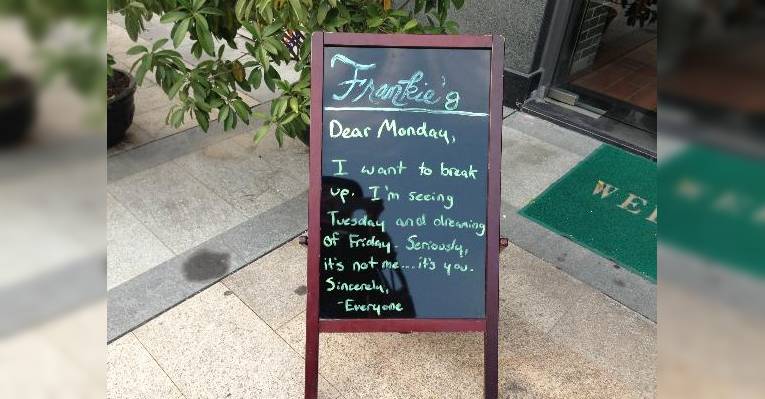 Frankie's
Dear Monday,
I want to break
up. I'm seeing
Tuesday and dreaming
of Friday. Seriously,
it's not me....it's you.
Sincerely,
-Everyone
WEL